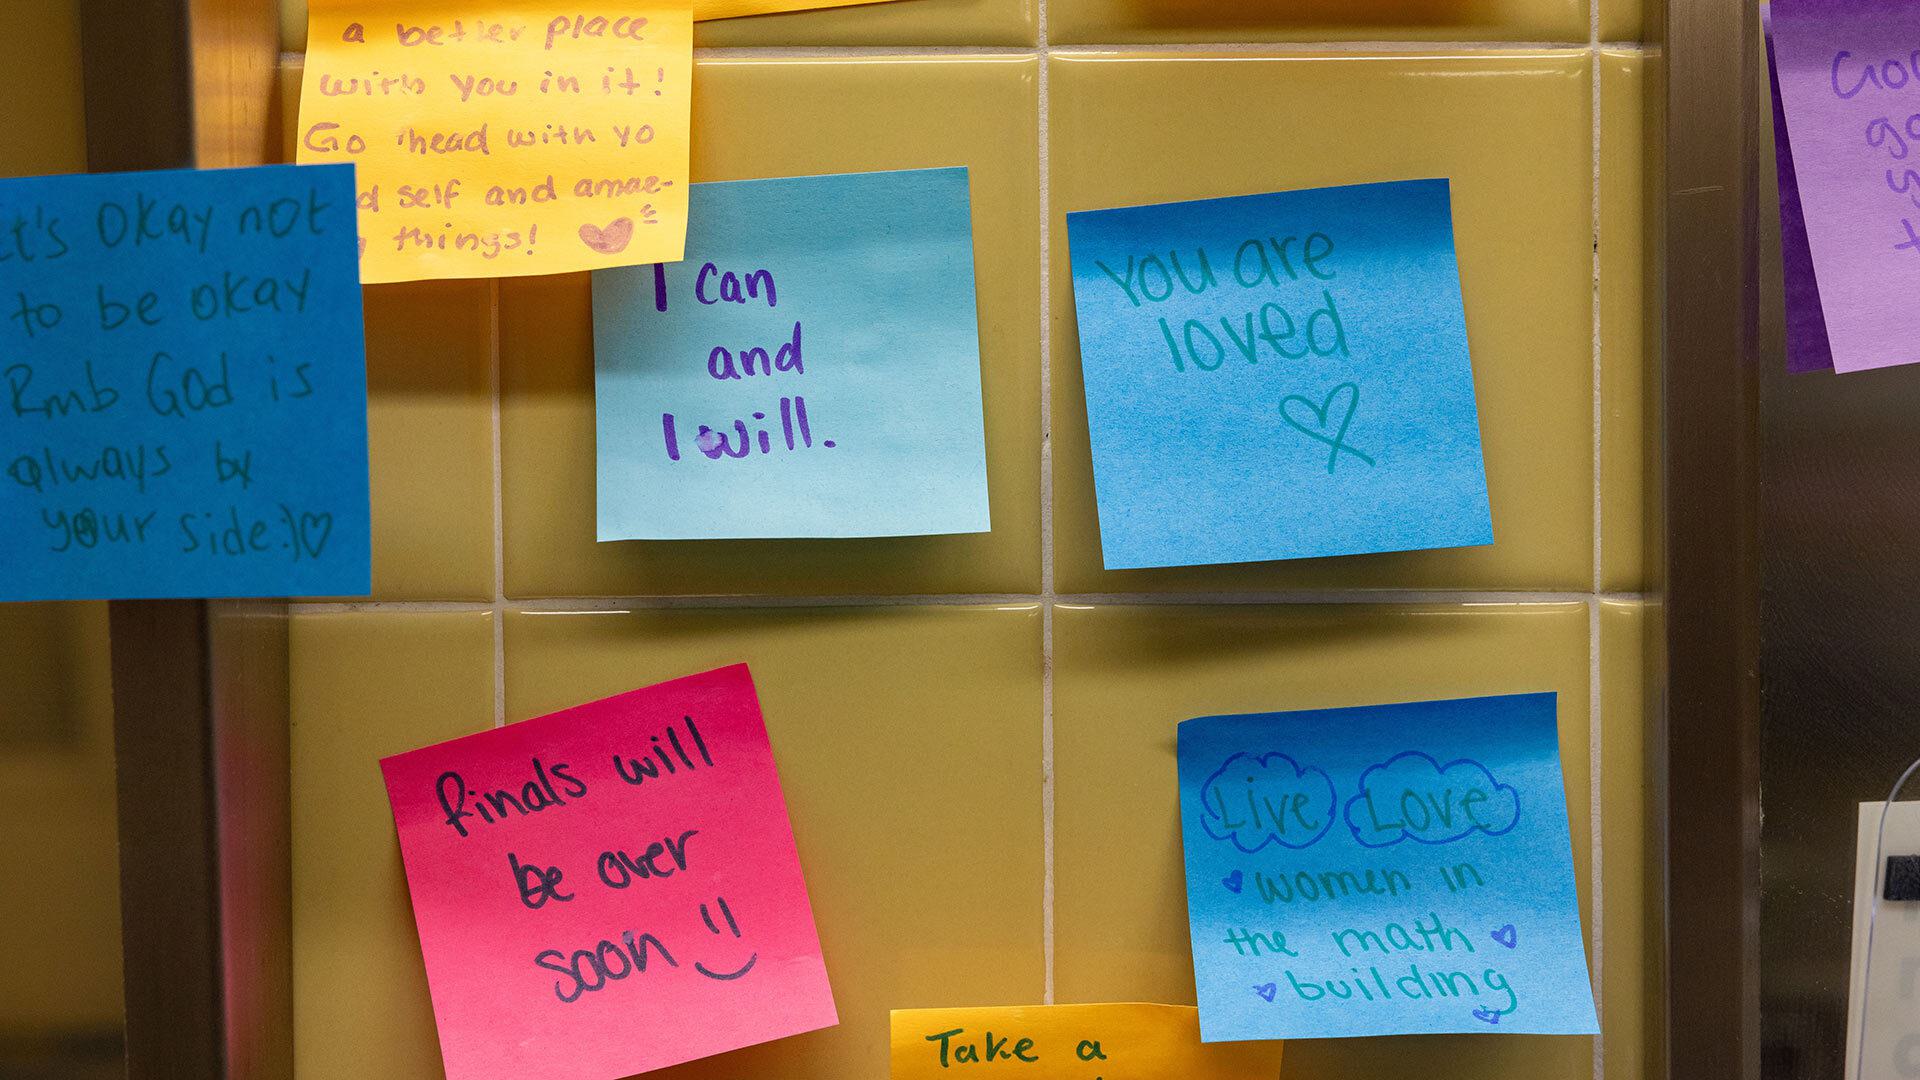 a better place
with you in it!
Go 'head with yo
self and amaz-
things!
It's okay not
to be okay
Rmb God is
always by
your side:)
I can
and
I will.
You are
loved
finals will
be over
soon
Live Love
women in
the math
building
Take a